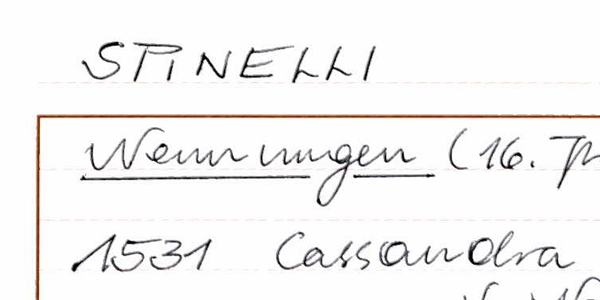 SPINELLI
Nennungen (16. Jh
1531 Cassandra